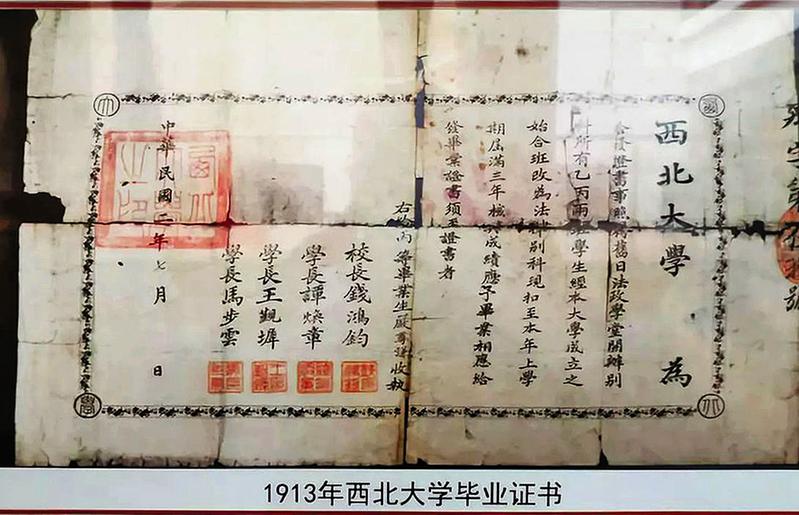 西北大学 為
給發證書事照得舊日法政學堂開辦别
科所有乙丙兩班學生經本大學成立之
始合班改為法科别科現扣至本年上學
期屆滿三年核成績應予畢業相應給
發畢業證書須至證書者
右給丙等畢業生嚴 收執
校長錢鴻鈞
學長譚煥章
學長王觀墀
學長馬步雲
中華民國二年七月 日
1913年西北大学毕业证书